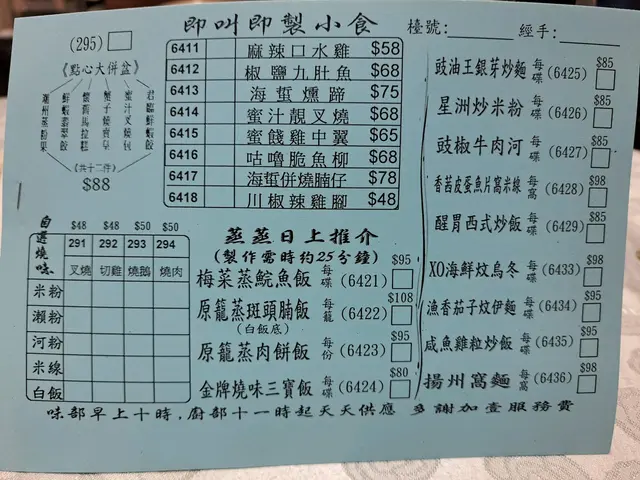 即叫即製小食
檯號: 經手:
(295)
《點心大併盆》
潮州蒸粉果
鮮蝦翡翠餃
懷舊馬拉糕
蟹子燒賣皇
蜜汁叉燒包
君臨鮮蝦餃
(共十二件)
$88
6411 麻辣口水雞 $58
6412 椒鹽九肚魚 $68
6413 海蜇燻蹄 $75
6414 蜜汁靚叉燒 $68
6415 蜜餞雞中翼 $65
6416 咕嚕脆魚柳 $68
6417 海蜇併燒腩仔 $78
6418 川椒辣雞腳 $48
自選燒味
$48 $48 $50 $50
291 292 293 294
叉燒 切雞 燒鵝 燒肉
米粉
瀨粉
河粉
米線
白飯
蒸蒸日上推介
(製作需時約25分鐘)
梅菜蒸鯇魚飯 每碟 (6421) $95
原籠蒸斑頭腩飯 每籠 (6422) $108
(白飯底)
原籠蒸肉餅飯 每份 (6423) $95
金牌燒味三寶飯 每碟 (6424) $80
豉油王銀芽炒麵 每碟 (6425) $85
星洲炒米粉 每碟 (6426) $85
豉椒牛肉河 每碟 (6427) $85
香茜皮蛋魚片窩米線 每窩 (6428) $98
醒胃西式炒飯 每碟 (6429) $85
XO海鮮炆烏冬 每碟 (6433) $98
漁香茄子炆伊麵 每碟 (6434) $95
咸魚雞粒炒飯 每碟 (6435) $95
揚州窩麵 每窩 (6436) $98
味部早上十時,廚部十一時起天天供應 多謝加壹服務費